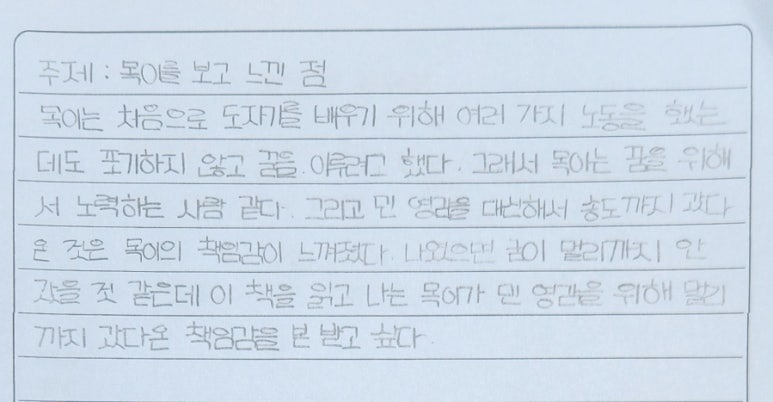 주제 : 목이를 보고 느낀 점
목이는 처음으로 도자기를 배우기 위해 여러 가지 노동을 했는
데도 포기하지 않고 꿈을 이루려고 했다. 그래서 목이는 꿈을 위해
서 노력하는 사람 같다. 그리고 민 영감을 대신해서 송도까지 갔다
온 것은 목이의 책임감이 느껴졌다. 나였으면 굳이 멀리까지 안
갔을 것 같은데 이 책을 읽고 나는 목이가 민 영감을 위해 멀리
까지 갔다온 책임감을 본 받고 싶다.